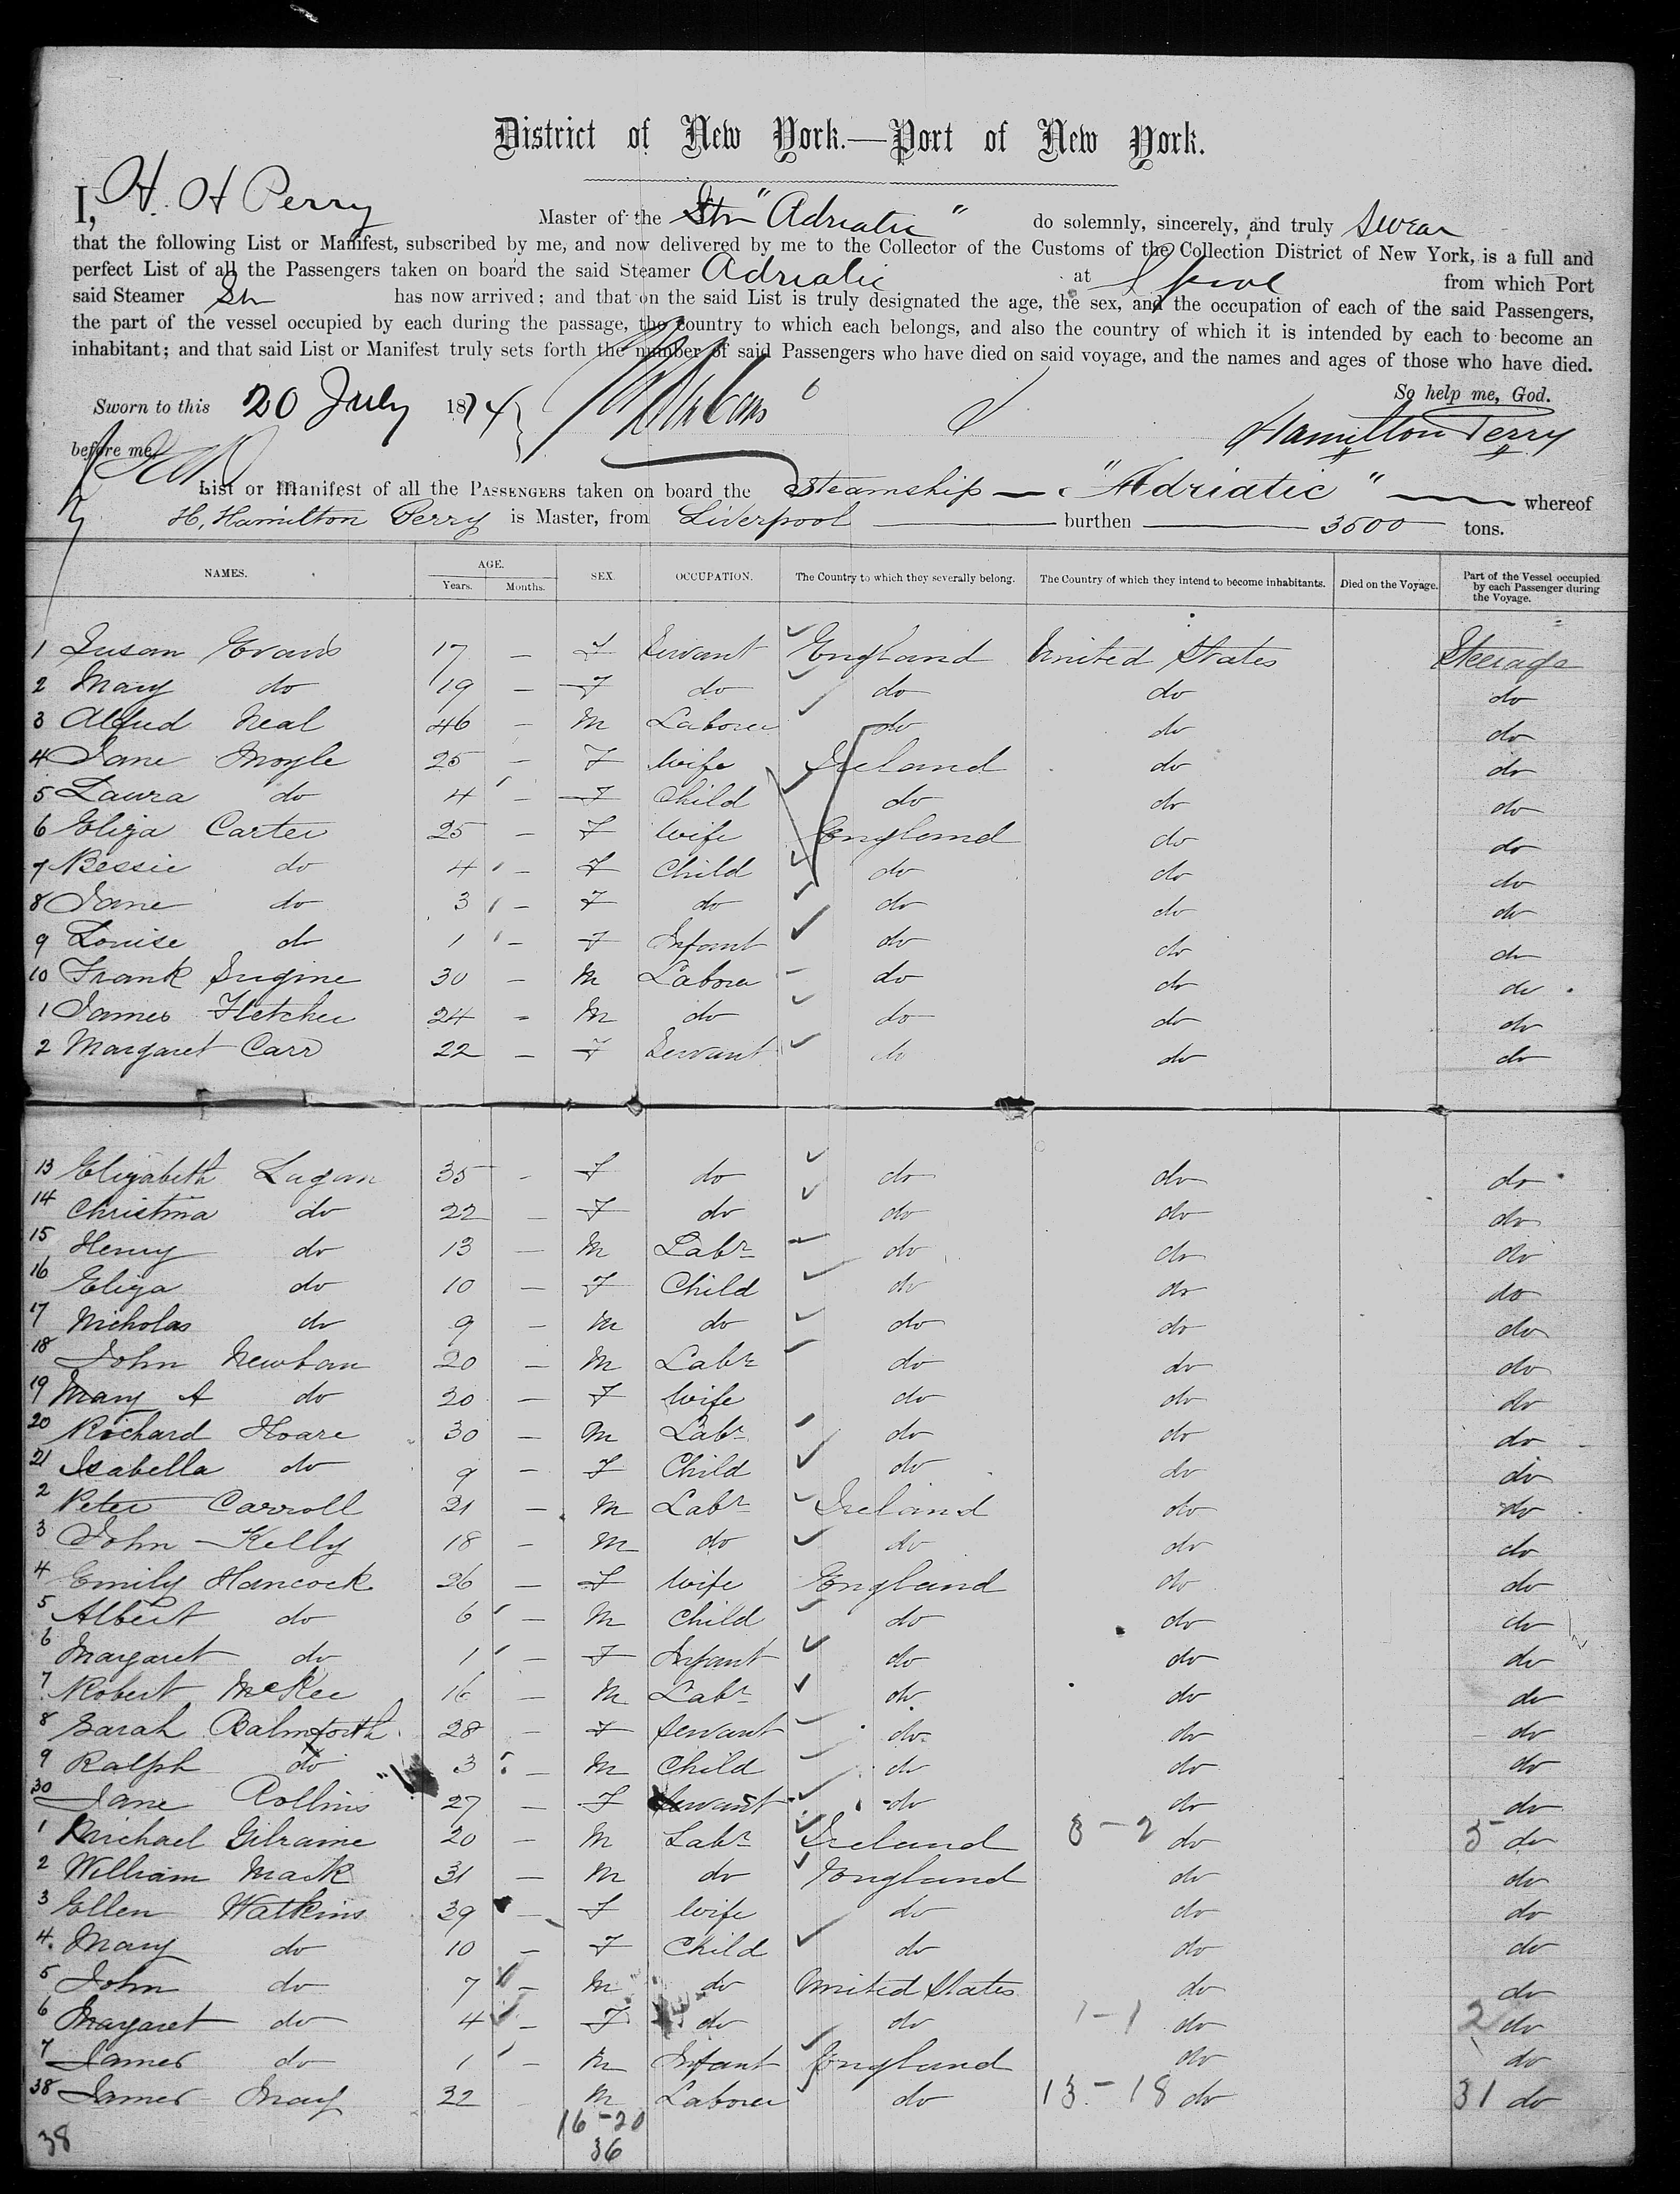 District of New York.—Port of New York.
I, H. H Perry Master of the Str "Adriatic" do solemnly, sincerely, and truly swear
that the following List or Manifest, subscribed by me, and now delivered by me to the Collector of the Customs of the Collection District of New York, is a full and
perfect List of all the Passengers taken on board the said Steamer Adriatic at L'pool from which Port
said Steamer has now arrived; and that on the said List is truly designated the age, the sex, and the occupation of each of the said Passengers,
the part of the vessel occupied by each during the passage, the country to which each belongs, and also the country of which it is intended by each to become an
inhabitant; and that said List or Manifest truly sets forth the number of said Passengers who have died on said voyage, and the names and ages of those who have died.
So help me, God.
Sworn to this 20 July 1874
Hamilton Perry
before me,
List or Manifest of all the PASSENGERS taken on board the Steamship — "Adriatic" — whereof
H. Hamilton Perry is Master, from Liverpool burthen 3500 tons.
NAMES. AGE. Years. Months. SEX. OCCUPATION. The Country to which they severally belong. The Country of which they intend to become inhabitants. Died on the Voyage. Part of the Vessel occupied by each Passenger during the Voyage.
1 Susan Evans 17 – F Servant England United States Steerage
2 Mary do 19 – F do do do do
3 Alfred Neal 46 – M Laborer do do do
4 Jane Moyle 25 – F Wife Ireland do do
5 Laura do 4 – F Child do do do
6 Eliza Carter 25 – F Wife England do do
7 Bessie do 4 – F Child do do do
8 Jane do 3 – F do do do do
9 Louise do 1 – F Infant do do do
10 Frank 30 – M Laborer do do do
1 James Fletcher 24 – M do do do do
2 Margaret Carr 22 – F Servant do do do
13 Elizabeth 35 – F do do do do
14 Christina do 22 – F do do do do
15 Henry do 13 – M Labr do do do
16 Eliza do 10 – F Child do do do
17 Nicholas do 9 – M do do do do
18 John 20 – M Labr do do do
19 Mary A do 20 – F Wife do do do
20 Richard Hoare 30 – M Labr do do do
21 Isabella do 9 – F Child do do do
2 Peter Carroll 21 – M Labr Ireland do do
3 John Kelly 18 – M do do do do
4 Emily Hancock 26 – F Wife England do do
5 Albert do 6 – M Child do do do
6 Margaret do 1 – F Infant do do do
7 Robert McKee 16 – M Labr do do do
8 Sarah Balmforth 28 – F Servant do do do
9 Ralph do 3 – M Child do do do
30 Jane Collins 27 – F Servant do do do
1 Michael Gilraine 20 – M Labr Ireland 8 – 2 do 5 do
2 William Mack 31 – M do England do do
3 Ellen Watkins 39 – F Wife do do do
4 Mary do 10 – F Child do do do
5 John do 7 – M do United States do do
6 Margaret do 4 – F do do 1 – 1 do 2 do
7 James do 1 – M Infant England do do
38 James May 32 – M Laborer do 13 – 18 do 31 do
16 – 20
38 36